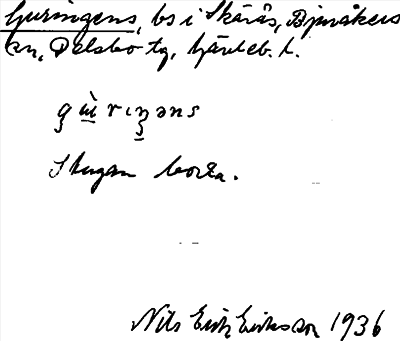 Guringens, bs i Skårås, Bjuråkers
sn, Delsbo tg, Gävleb. l.
gɯ̀rɩŋəns
Stugan borta.
Nils Erik Eriksson 1936